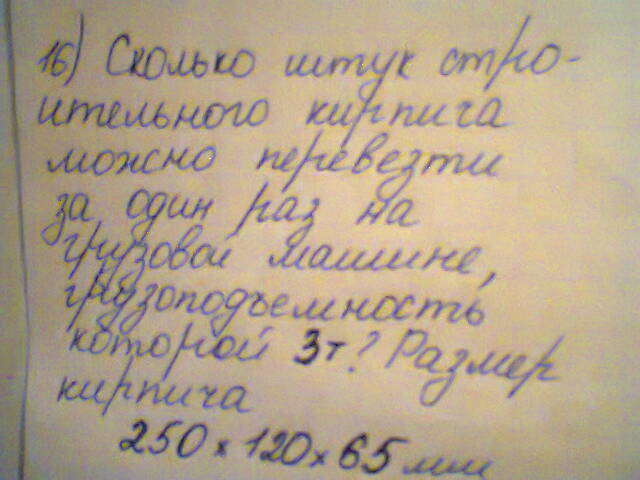 16) Сколько штук стро-
ительного кирпича
можно перевезти
за один раз на
грузовой машине,
грузоподъемность
которой 3т? Размер
кирпича
250 х 120 х 65 мм